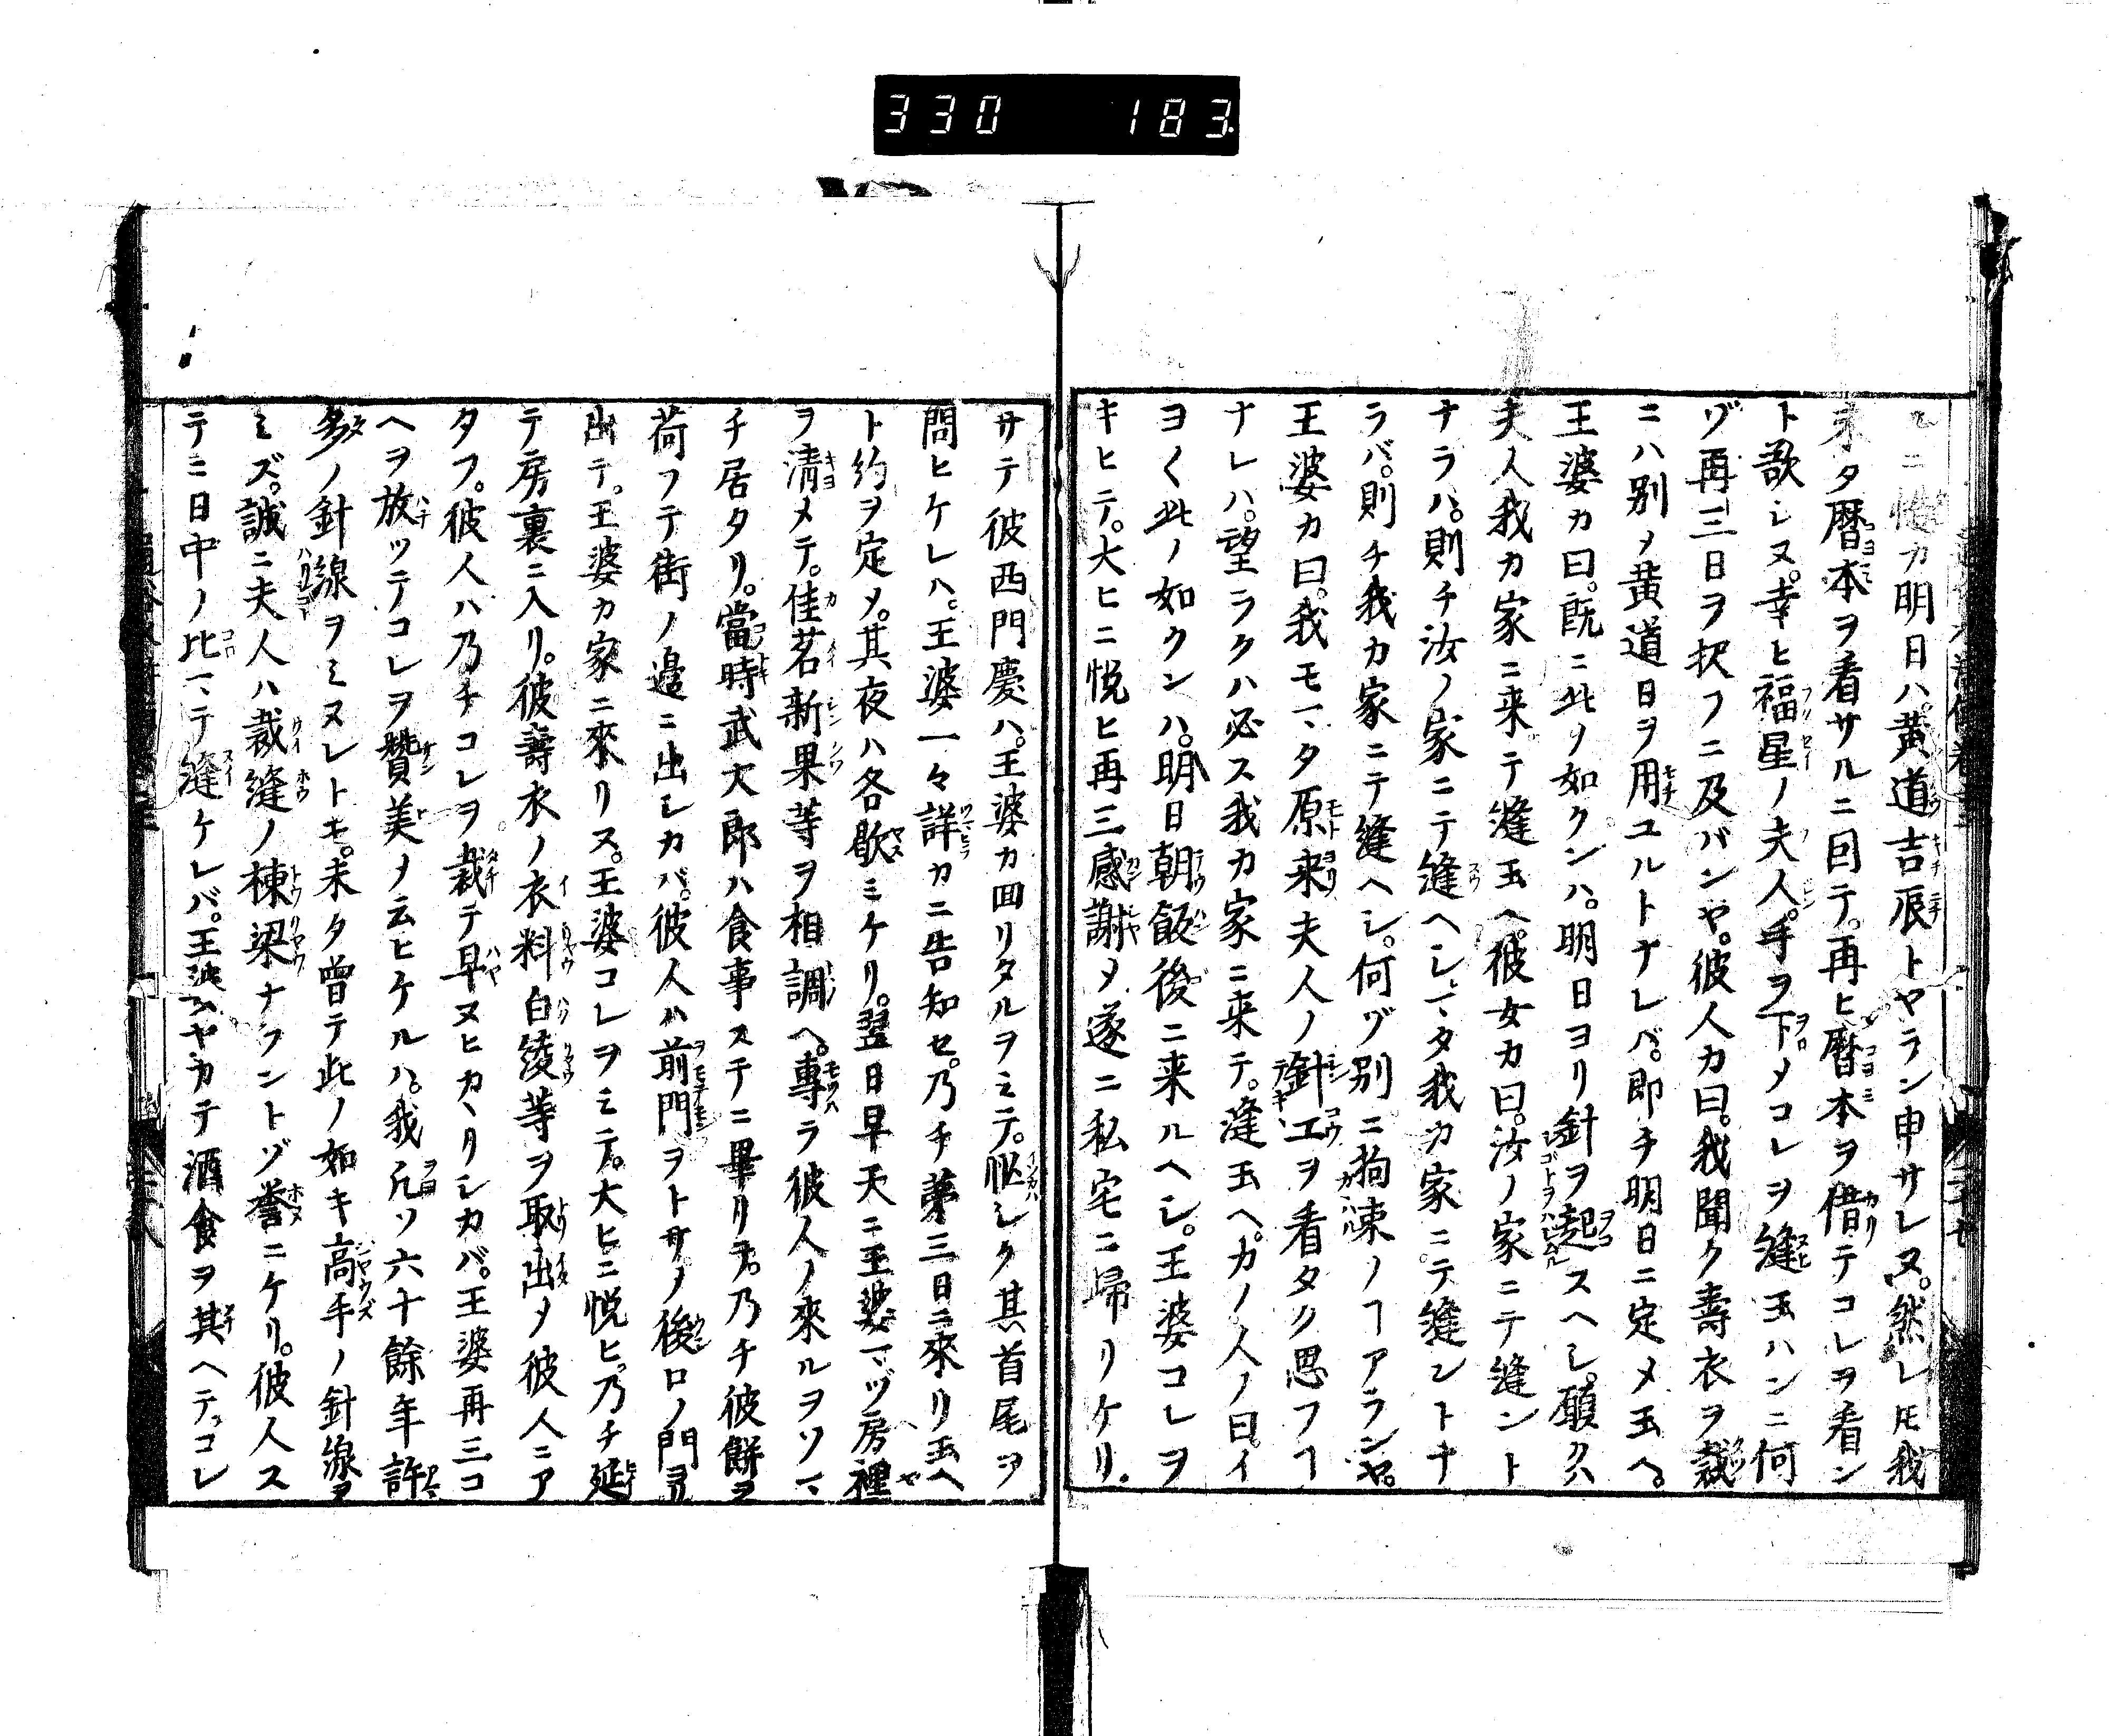 330 183
ニ悔カ明日ハ黄道吉辰トヤラン申サレヌ。然レ𪜈我
未タ暦本ヲ看サルニ回テ。再ヒ暦本ヲ借テコレヲ看ン
ト歌シヌ。幸ヒ福星ノ夫人。手ヲ下メコレヲ縫玉ハンニ何
ゾ再三日ヲ択フニ及バンヤ。彼人カ曰。我聞ク壽衣ヲ裁
ニハ別ノ黄道日ヲ用ユルトナレバ。即チ明日ニ定メ玉ヘ。
王婆カ曰。既ニ此ノ如クンハ。明日ヨリ針ヲ起スヘシ。願クハ
夫人我カ家ニ来テ縫玉ヘ。彼女カ曰。汝ノ家ニテ縫ント
ナラハ。則チ汝ノ家ニテ縫ヘシ。マタ我カ家ニテ縫ントナ
ラバ。則チ我カ家ニテ縫ヘシ。何ゾ別ニ拘束ノヿアランヤ。
王婆カ曰。我モマタ原来夫人ノ針工ヲ看タク思フヿ
ナレハ。望ラクハ必ス我カ家ニ来テ。縫玉ヘ。カノ人ノ曰。イ
ヨ〱此ノ如クンハ。明日朝飯後ニ来ルヘシ。王婆コレヲ
キヒテ。大ヒニ悦ヒ再三感謝メ遂ニ私宅ニ歸リケリ。
サテ彼西門慶ハ。王婆カ回リタルヲミテ。忙シク其首尾ヲ
問ヒケレハ。王婆一々詳カニ告知セ。乃チ第三日ニ來リ玉ヘ
ト約ヲ定メ。其夜ハ各歇ミケリ。翌日早天ニ王婆マヅ房裡
ヲ清メテ。佳茗新果等ヲ相調ヘ。專ラ彼人ノ來ルヲソマ
チ居タリ。當時武大郎ハ食事ステニ畢リテ。乃チ彼餅ヲ
荷フテ街ノ邉ニ出シカバ。彼人ハ前門ヲトサメ後ロノ門ヨリ
出テ。王婆カ家ニ來リヌ。王婆コレヲミテ。大ヒニ悦ヒ。乃チ延
テ房裏ニ入リ。彼壽衣ノ衣料白綾等ヲ取出メ彼人ニア
タフ。彼人ハ乃チコレヲ裁テ早ヌヒカヽリシカバ。王婆再三コ
ヘヲ放ツテコレヲ賛美メ云ヒケルハ。我凡ソ六十餘年許
多ノ針線ヲミヌレトモ。未タ曾テ此ノ如キ高手ノ針線ヲ
ミズ。誠ニ夫人ハ裁縫ノ棟梁ナラントゾ誉ニケリ。彼人ス
テニ日中ノ比マテ縫ケレバ。王婆ハヤカテ酒食ヲ其ヘテ。コレ